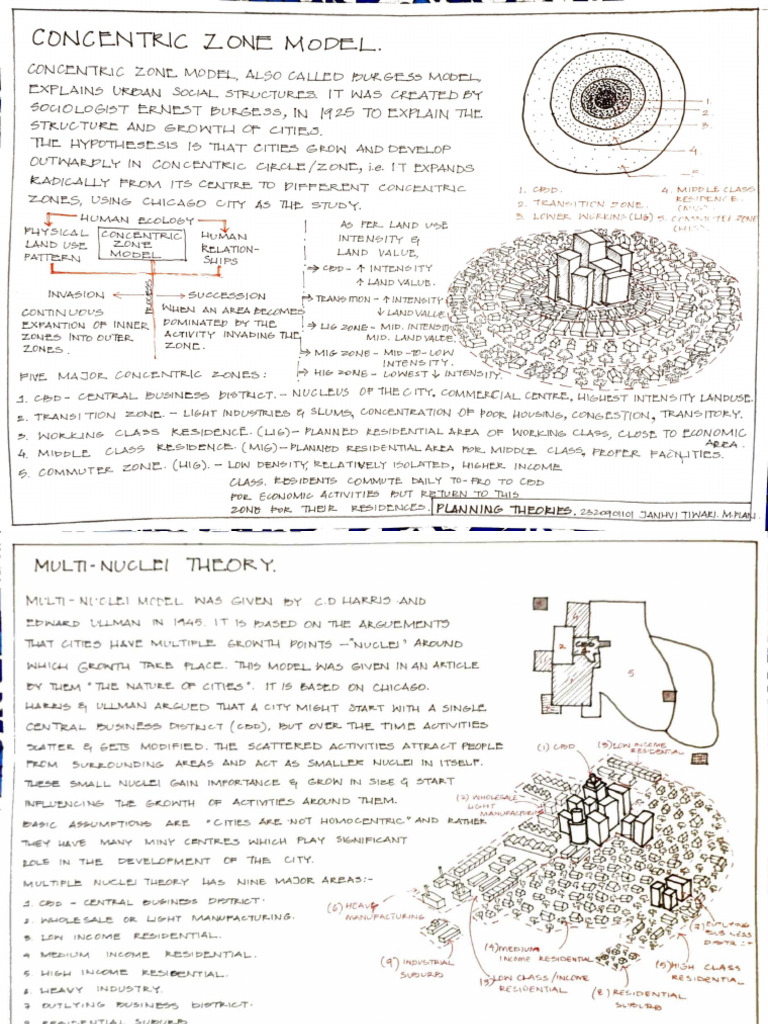 CONCENTRIC ZONE MODEL.
CONCENTRIC ZONE MODEL, ALSO CALLED BURGESS MODEL,
EXPLAINS URBAN SOCIAL STRUCTURES. IT WAS CREATED BY
SOCIOLOGIST ERNEST BURGESS, IN 1925 TO EXPLAIN THE
STRUCTURE AND GROWTH OF CITIES.
THE HYPOTHESESIS IS THAT CITIES GROW AND DEVELOP
OUTWARDLY IN CONCENTRIC CIRCLE/ZONE, i.e. IT EXPANDS
RADICALLY FROM ITS CENTRE TO DIFFERENT CONCENTRIC
ZONES, USING CHICAGO CITY AS THE STUDY.
1.
2.
3.
4.
5.
1. CBD.
2. TRANSITION ZONE.
3. LOWER WORKING (LIG)
4. MIDDLE CLASS
RESIDENCE.
(MIG)
5. COMMUTER ZONE
(HIG).
HUMAN ECOLOGY
PHYSICAL
LAND USE
PATTERN
CONCENTRIC
ZONE
MODEL
HUMAN
RELATION-
SHIPS
PROCESS
INVASION
SUCCESSION
CONTINUOUS
EXPANTION OF INNER
ZONES INTO OUTER
ZONES.
WHEN AN AREA BECOMES
DOMINATED BY THE
ACTIVITY INVADING THE
ZONE.
AS PER LAND USE
INTENSITY &
LAND VALUE,
→ CBD - ↑ INTENSITY
↑ LAND VALUE.
→ TRANSITION - ↑ INTENSITY
↓ LAND VALUE.
→ LIG ZONE - MID. INTENSITY
MID. LAND VALUE.
→ MIG ZONE - MID-TO-LOW
INTENSITY.
→ HIG ZONE - LOWEST ↓ INTENSITY.
FIVE MAJOR CONCENTRIC ZONES:
1. CBD - CENTRAL BUSINESS DISTRICT. - NUCLEUS OF THE CITY, COMMERCIAL CENTRE, HIGHEST INTENSITY LANDUSE.
2. TRANSITION ZONE. - LIGHT INDUSTRIES & SLUMS, CONCENTRATION OF POOR HOUSING, CONGESTION, TRANSITORY.
3. WORKING CLASS RESIDENCE. (LIG) - PLANNED RESIDENTIAL AREA OF WORKING CLASS, CLOSE TO ECONOMIC
AREA.
4. MIDDLE CLASS RESIDENCE. (MIG) - PLANNED RESIDENTIAL AREA FOR MIDDLE CLASS, PROPER FACILITIES.
5. COMMUTER ZONE. (HIG). - LOW DENSITY, RELATIVELY ISOLATED, HIGHER INCOME
CLASS. RESIDENTS COMMUTE DAILY TO-FRO TO CBD
FOR ECONOMIC ACTIVITIES BUT RETURN TO THIS
ZONE FOR THEIR RESIDENCES.
PLANNING THEORIES. 2320901101 JANHVI TIWARI. M.PLAN.
MULTI-NUCLEI THEORY.
MULTI-NUCLEI MODEL WAS GIVEN BY C.D HARRIS AND
EDWARD ULLMAN IN 1945. IT IS BASED ON THE ARGUEMENTS
THAT CITIES HAVE MULTIPLE GROWTH POINTS - "NUCLEI" AROUND
WHICH GROWTH TAKE PLACE. THIS MODEL WAS GIVEN IN AN ARTICLE
BY THEM "THE NATURE OF CITIES". IT IS BASED ON CHICAGO.
HARRIS & ULLMAN ARGUED THAT A CITY MIGHT START WITH A SINGLE
CENTRAL BUSINESS DISTRICT (CBD), BUT OVER THE TIME ACTIVITIES
SCATTER & GETS MODIFIED. THE SCATTERED ACTIVITIES ATTRACT PEOPLE
FROM SURROUNDING AREAS AND ACT AS SMALLER NUCLEI IN ITSELF.
THESE SMALL NUCLEI GAIN IMPORTANCE & GROW IN SIZE & START
INFLUENCING THE GROWTH OF ACTIVITIES AROUND THEM.
BASIC ASSUMPTIONS ARE "CITIES ARE NOT HOMOCENTRIC" AND RATHER
THEY HAVE MANY MINY CENTRES WHICH PLAY SIGNIFICANT
ROLE IN THE DEVELOPMENT OF THE CITY.
MULTIPLE NUCLEI THEORY HAS NINE MAJOR AREAS:-
1. CBD - CENTRAL BUSINESS DISTRICT
2. WHOLESALE OR LIGHT MANUFACTURING.
3 LOW INCOME RESIDENTIAL.
4 MEDIUM INCOME RESIDENTIAL.
5. HIGH INCOME RESIDENTIAL.
6. HEAVY INDUSTRY.
7 OUTLYING BUSINESS DISTRICT.
8. RESIDENTIAL SUBURB
2
5
(1) CBD
(3) LOW INCOME
RESIDENTIAL
(2) WHOLESALE
LIGHT
MANUFACTURING
(6) HEAVY
MANUFACTURING
(9) INDUSTRIAL
SUBURB
(4) MEDIUM
INCOME RESIDENTIAL
(3) LOW CLASS/INCOME
RESIDENTIAL
(7) OUTLYING
BUSINESS
DISTRICT
(5) HIGH CLASS
RESIDENTIAL
(8) RESIDENTIAL
SUBURB